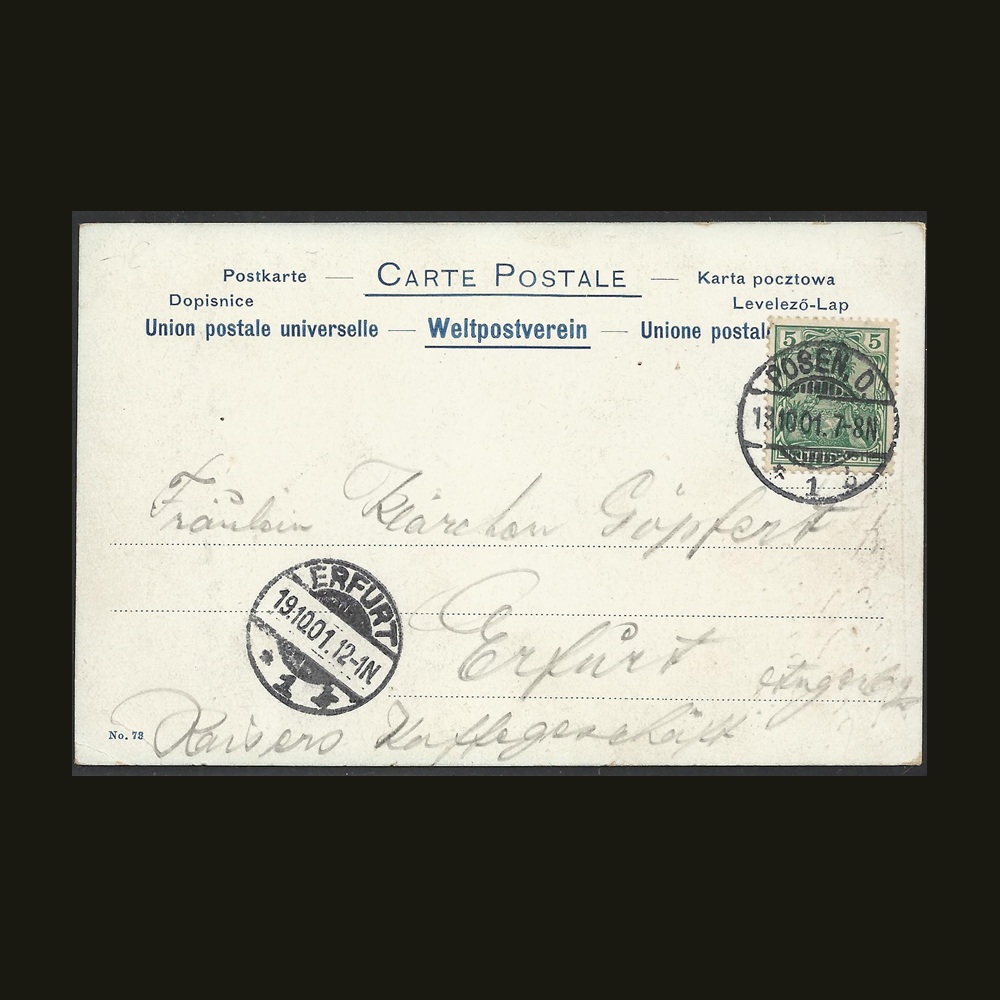 Postkarte — CARTE POSTALE — Karta pocztowa
Dopisnice Levelező-Lap
Union postale universelle — Weltpostverein — Unione postal
5 5
POSEN. O.
18.10.01. 7-8N
* 1 g
Fräulein Klärchen Göpfert
ERFURT
19.10.01. 12-1N
* 1 k
Erfurt
Anger
Kaisers Kaffegeschäft
No. 73